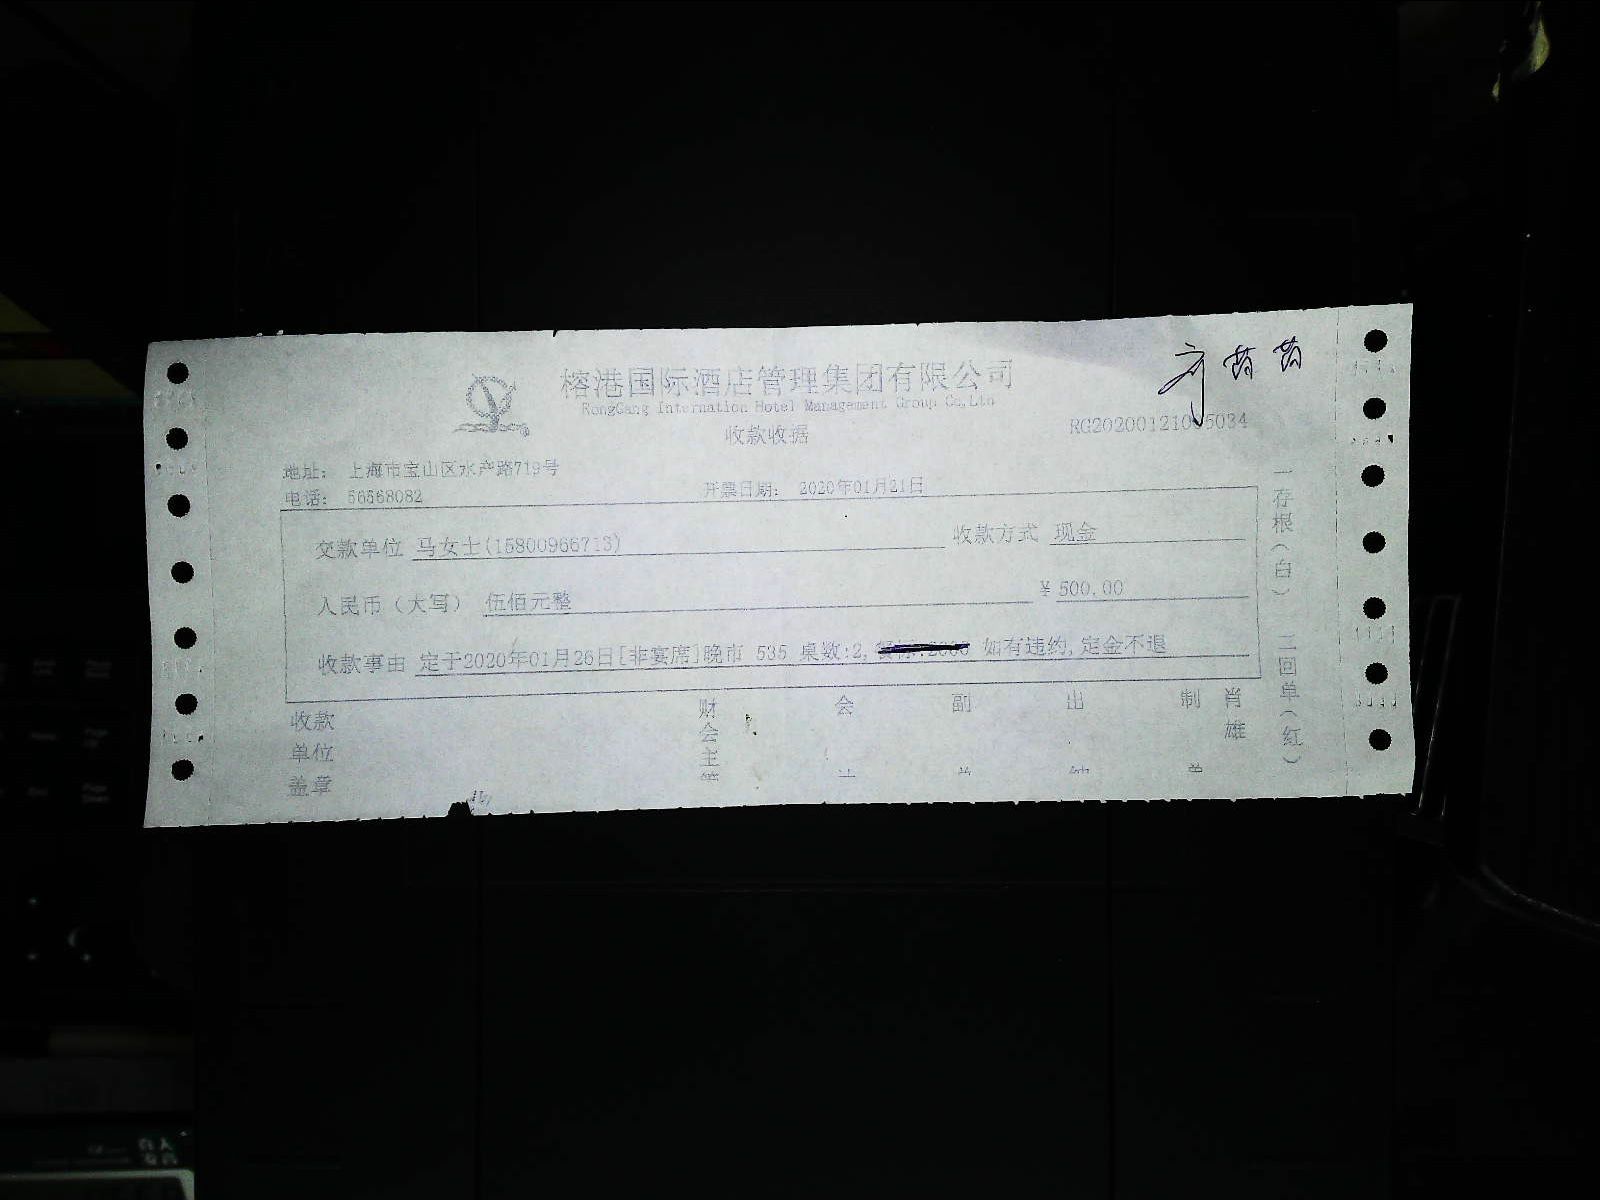 榕港国际酒店管理集团有限公司
RongGang Internation Hotel Management Group Co,Ltd
收款收据
地址： 上海市宝山区水产路719号
电话： 56568082
开票日期： 2020年01月21日
交款单位 马女士(15800966713) 收款方式 现金
人民币（大写） 伍佰元整 ¥ 500.00
收款事由 定于2020年01月26日[非宴席]晚市 535 桌数:2, 如有违约,定金不退
收款单位盖章 财会主管 会 副 出 制 肖雄
一存根（白） 二回单（红）